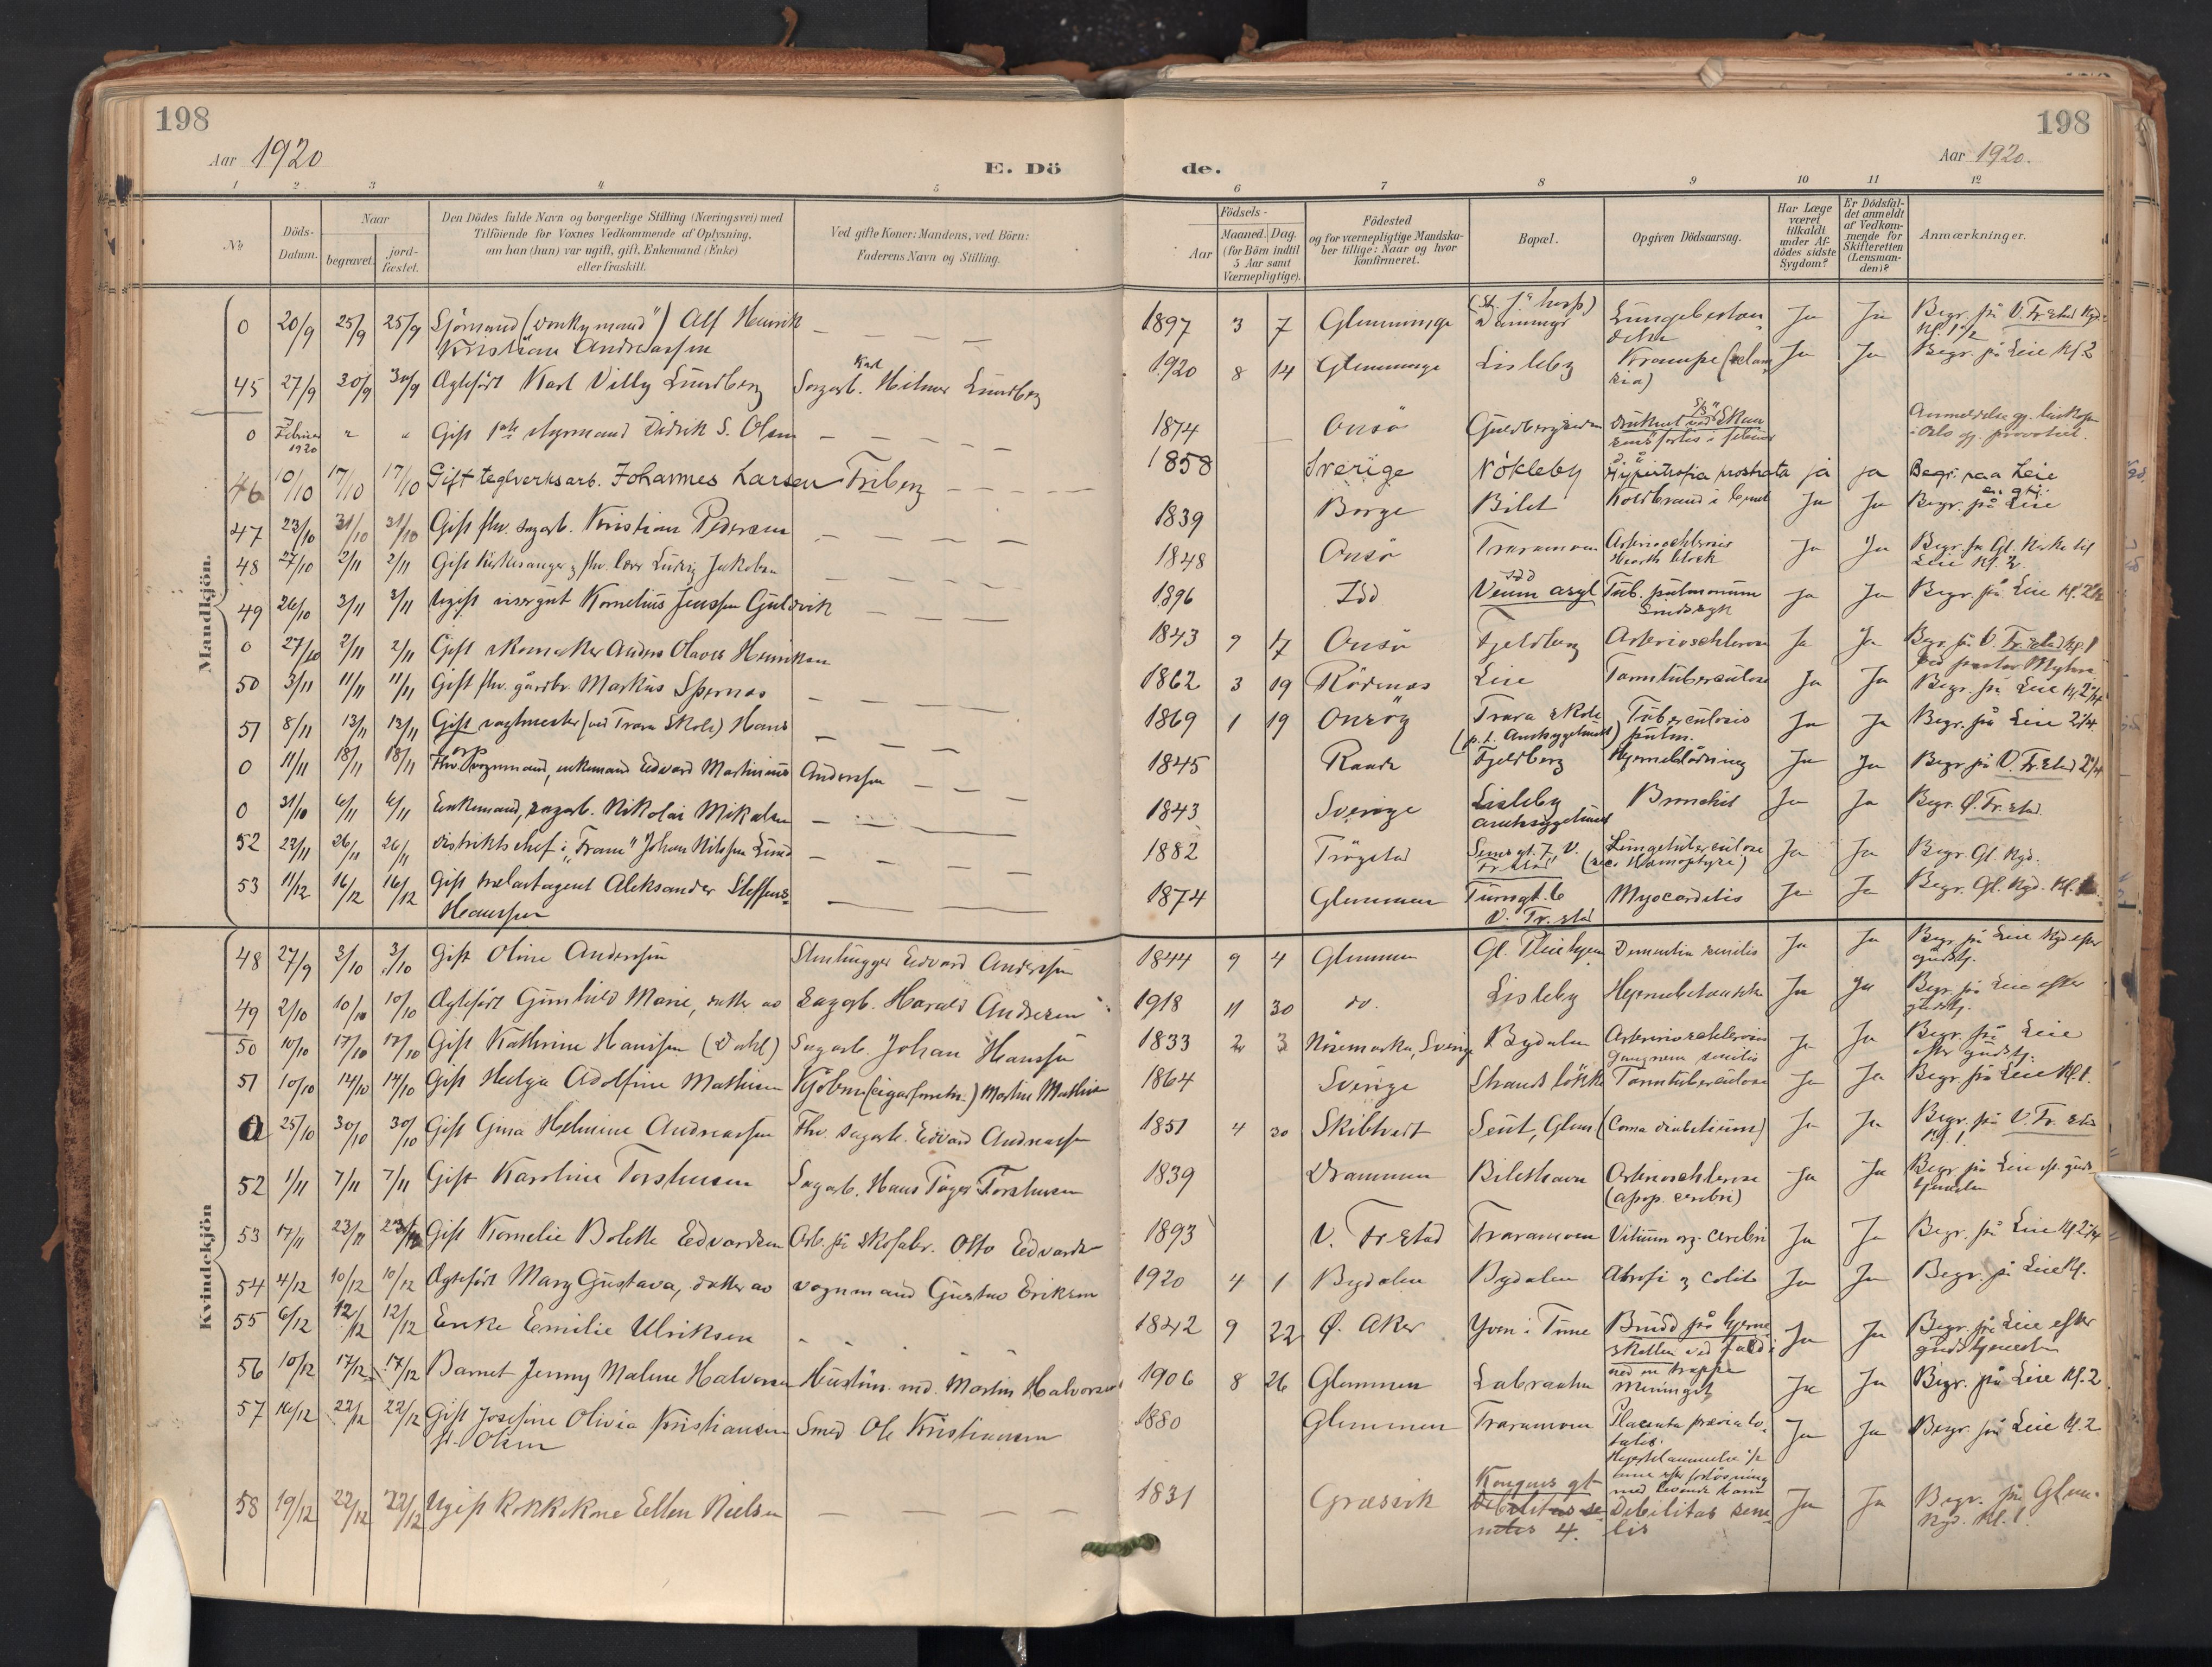 198
198
Aar 1920
E. Dö
de.
Aar 1920.
1 2 3 4 5 6 7 8 9 10 11 12
№
Döds-Datum.
Naar
begravet.
jord-fæstet.
Den Dödes fulde Navn og borgerlige Stilling (Næringsvei) med
Tilföiende for Voxnes Vedkommende af Oplysning,
om han (hun) var ugift, gift, Enkemand (Enke)
eller fraskilt.
Ved gifte Koner: Mandens, ved Börn:
Faderens Navn og Stilling.
Födsels-
Aar
Maaned. Dag.
(for Börn indtil
5 Aar samt
Værnepligtige).
Födested
og for værnepligtige Mandska-
ber tillige: Naar og hvor
konfirmeret.
Bopæl.
Opgiven Dödsaarsag.
Har Læge
været
tilkaldt
under Af-
dödes sidste
Sygdom?
Er Dödsfal-
det anmeldt
af Vedkom-
mende for
Skifteretten
(Lensman-
den)?
Anmærkninger.
Mandkjön.
0 20/9 25/9 25/9 Sjömand ("Donkymand") Alf Henrik Kristian Andreassen — 1897 3 7 Glemminge Ja Ja Begr. på V. Fr.stad Kgd. Kl. 1 1/2
45 27/9 30/9 30/9 Ægtefødt Karl Villy Lundberg Sagarb. Karl Hilmar Lundberg 1920 8 14 Glemminge Lisleby Krampe Ja Ja Begr. på Leie Kl. 2
0 Februar 1920 " " Gift 1ste styrmand Didrik S. Olsen — 1874 Onsö
46 10/10 17/10 17/10 Gift teglverksarb. Johannes Larsen Friberg — 1858 Sverige Nökleby Hypertrofia prostrata ja ja Begr. paa Leie
47 23/10 31/10 31/10 Gift fhv. sagarb. Kristian Pedersen — 1839 Borge Bilet Koldbrand i benet Ja Ja Begr. på Leie
48 27/10 2/11 2/11 Gift Kirkesanger og fhv. lærer Ludvig Jakobsen — 1848 Onsö Traramoen Arteriosclerosis Hearth block Ja Ja Begr. fra Gl. Kirke til Leie Kl. 2
49 26/10 3/11 3/11 Ugift visergut Kornelius Jenssen Guldvik — 1896 Idd Veum asyl Idd Tub. pulmonum Sindssyk Ja Ja Begr. på Leie Kl. 2 1/2
0 27/10 2/11 2/11 Gift skomaker Anders Olaves Henriksen 1843 9 17 Onsö Fjeldberg Arteriosclerose Ja Ja Begr. på V. Fr.stad Kl. 1
50 3/11 11/11 11/11 Gift fhv. gårdbr. Markus Spernæs — 1862 3 19 Rödenæs Leie Tarmtuberculose Ja Ja Begr. på Leie Kl. 2 1/4
51 8/11 13/11 13/11 Gift vagtmester (ved Trara Skole) Hans — 1869 1 19 Onsöy Trara skole (p.t. Amtssygehuset) Tuberculosis pulm. Ja Ja Begr. på Leie 2 1/4
0 11/11 18/11 18/11 Fhv. vognmand, enkemand Edvard Martinius Anderssen — 1845 Raade Fjeldberg Hjerneblödning Ja Ja Begr. på V. Fr.stad 2 1/4
0 31/10 6/11 6/11 Enkemand, sagarb. Nikolai Mikalsen — 1843 Sverige Lisleby amtssygehuset Bronchit Ja Ja Begr. Ø. Fr.stad.
52 22/11 26/11 26/11 Distriktschef i "Fram" Johan Nilssen Lund — 1882 Trögstad V. Fr.stad Lungetuberculose (Hæmoptyse) Ja Ja Begr. Gl. Kgd.
53 11/12 16/12 16/12 Gift trælastagent Aleksander Steffens- Hanssen — 1874 Glemmen Turngt. 6 V. Fr.stad Myocarditis Ja Ja Begr. Gl. Kgd. Kl.
Kvindekjön
48 27/9 3/10 3/10 Gift Oline Anderssen Stenhugger Edvard Anderssen 1844 9 4 Glemmen Gl. Pleiehjem Dementia senilis Ja Ja Begr. på Leie Kgd. efter gudstj.
49 2/10 10/10 10/10 Ægtefødt Gunhild Marie, datter av Sagarb. Harald Andresen 1918 11 30 do. Lisleby Hjernebetændelse Ja Ja Begr. på Leie efter gudstj.
50 10/10 17/10 17/10 Gift Kathrine Hanssen (Dahl) Sagarb. Johan Hanssen 1833 2 3 Nösemarka, Sverige Bydalen Arteriosclerosis Gangræna senilis Ja Ja Begr. på Leie efter gudstj.
51 10/10 14/10 14/10 Gift Helga Adolfine Mathisen Kjöbm. (cigarforretn.) Martin Mathisen 1864 Sverige Strandslökke Tarmtuberculose Ja Ja Begr. på Leie Kl. 1.
0 25/10 30/10 30/10 Gift Gina Helmine Andreassen Fhv. sagarb. Edvard Andreassen 1851 4 30 Skibtvedt Seut, Glem. (Coma diabeticum) Ja Ja Begr. på V. Fr.stad Kl. 1.
52 1/11 7/11 7/11 Gift Karoline Torshusen Sagarb. Hans Töger Torshusen 1839 Drammen Bilethaven Arteriosclerose (apop. cerebri) Ja Ja Begr. på Leie ef. gudstjenesten
53 17/11 23/11 23/11 Gift Kornelie Bolette Edvardsen Arb. på skofabr. Otto Edvardsen 1893 V. Fr.stad Traramoen Vitium org. cerebri Ja Ja Begr. på Leie Kl. 2 1/4
54 4/12 10/12 10/12 Ægtefödt Mary Gustava, datter av vognmand Gustav Eriksen 1920 4 1 Bydalen Bydalen Atrofi og colit Ja Ja Begr. på Leie Kl.
55 6/12 12/12 12/12 Enke Emilie Ulriksen — 1842 9 22 Ø. Aker Yven i Tune Brudd på hjerneskallen ved fald ned en trappe Ja Ja Begr. på Leie efter gudstjenesten
56 10/12 17/12 17/12 Barnet Jenny Malene Halvorsen md. Martin Halvorsen 1906 8 26 Glemmen Labraaten Meningit Ja Ja Begr. på Leie Kl. 2
57 16/12 22/12 22/12 Gift Josefine Olivia Kristiansen f. Olsen Smed Ole Kristiansen 1880 Glemmen Traramoen Placenta prævia totalis. Hjertelammelse 1/2 time efter forlösning med levende barn Ja Ja Begr. på Leie Kl. 2
58 19/12 22/12 22/12 Ugift Kokkekone Ellen Nielsen — 1831 Græsvik Kongens gt 4. Debilitas senilis Ja Ja Begr. på Glem. Kgd. Kl. 1.